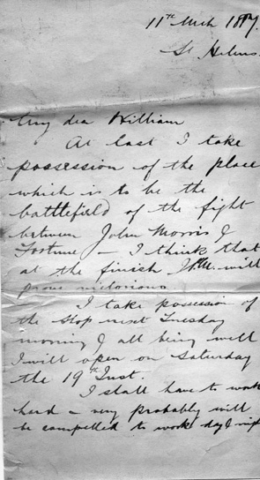 11th Mch 1887.
St. Helens
My dear William
At last I take
possession of the place
which is to be the
battlefield of the fight
between John Morris &
Fortune — I think that
at the finish J.M. will
prove victorious
I take possession of
the shop next Tuesday
morning & all being well
I will open on Saturday
the 19th Inst.
I shall have to work
hard — very probably will
be compelled to work day &